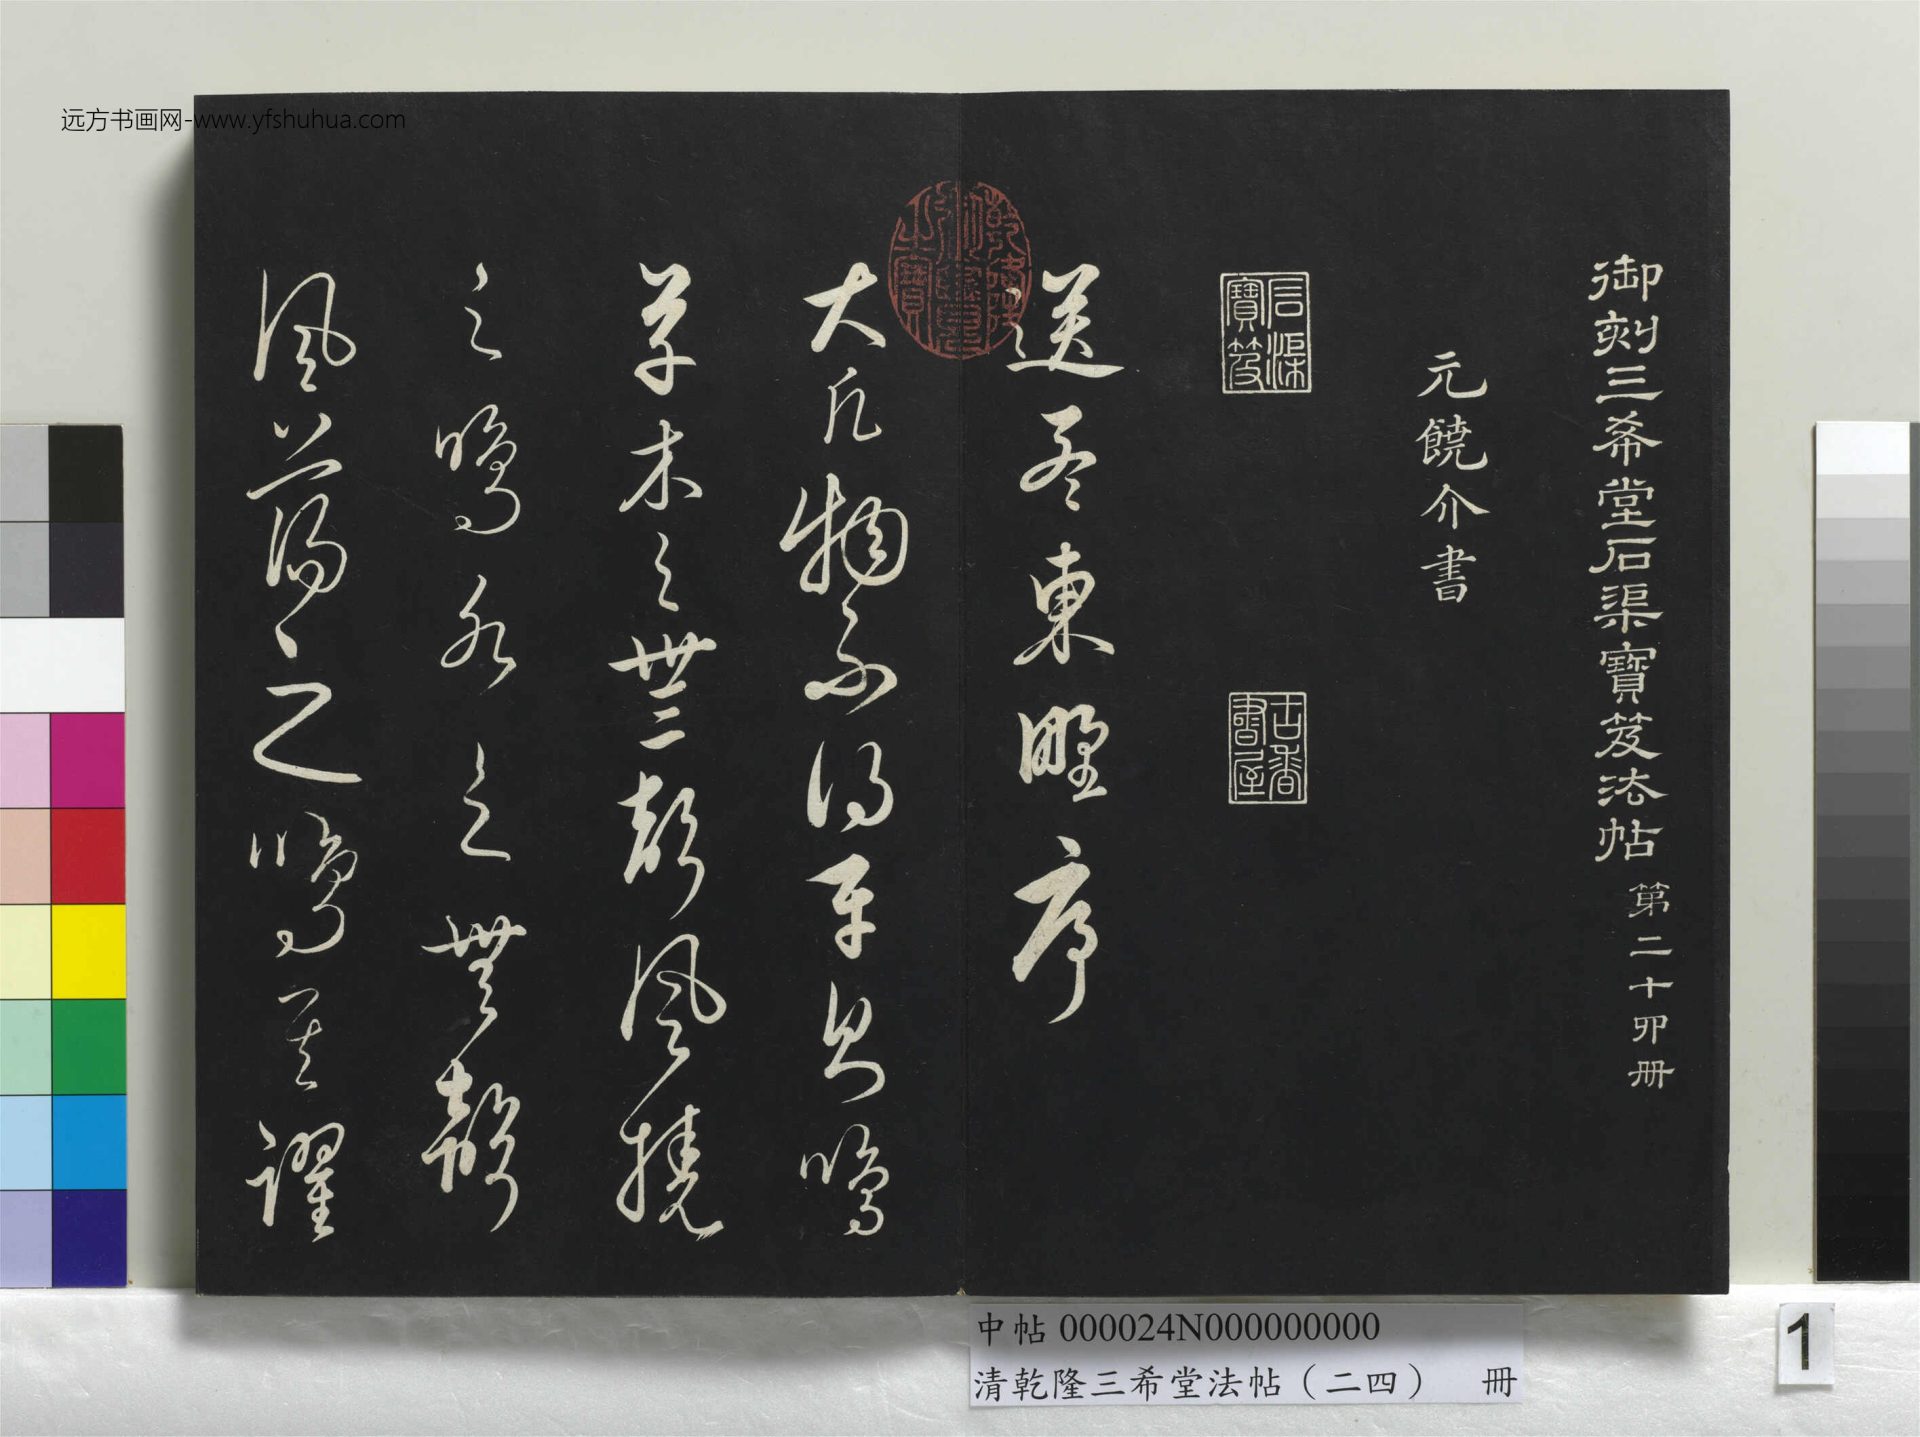 远方书画网-www.yfshuhua.com
御刻三希堂石渠寶笈法帖 第二十四冊
元饒介書
石渠寶笈
古香書屋
乾隆御覽之寶
送孟東野序
大凡物不得平則鳴
草木之無聲風撓
之鳴水之無聲
風蕩之鳴其躍
中帖 000024N000000000
清乾隆三希堂法帖（二四） 冊
1